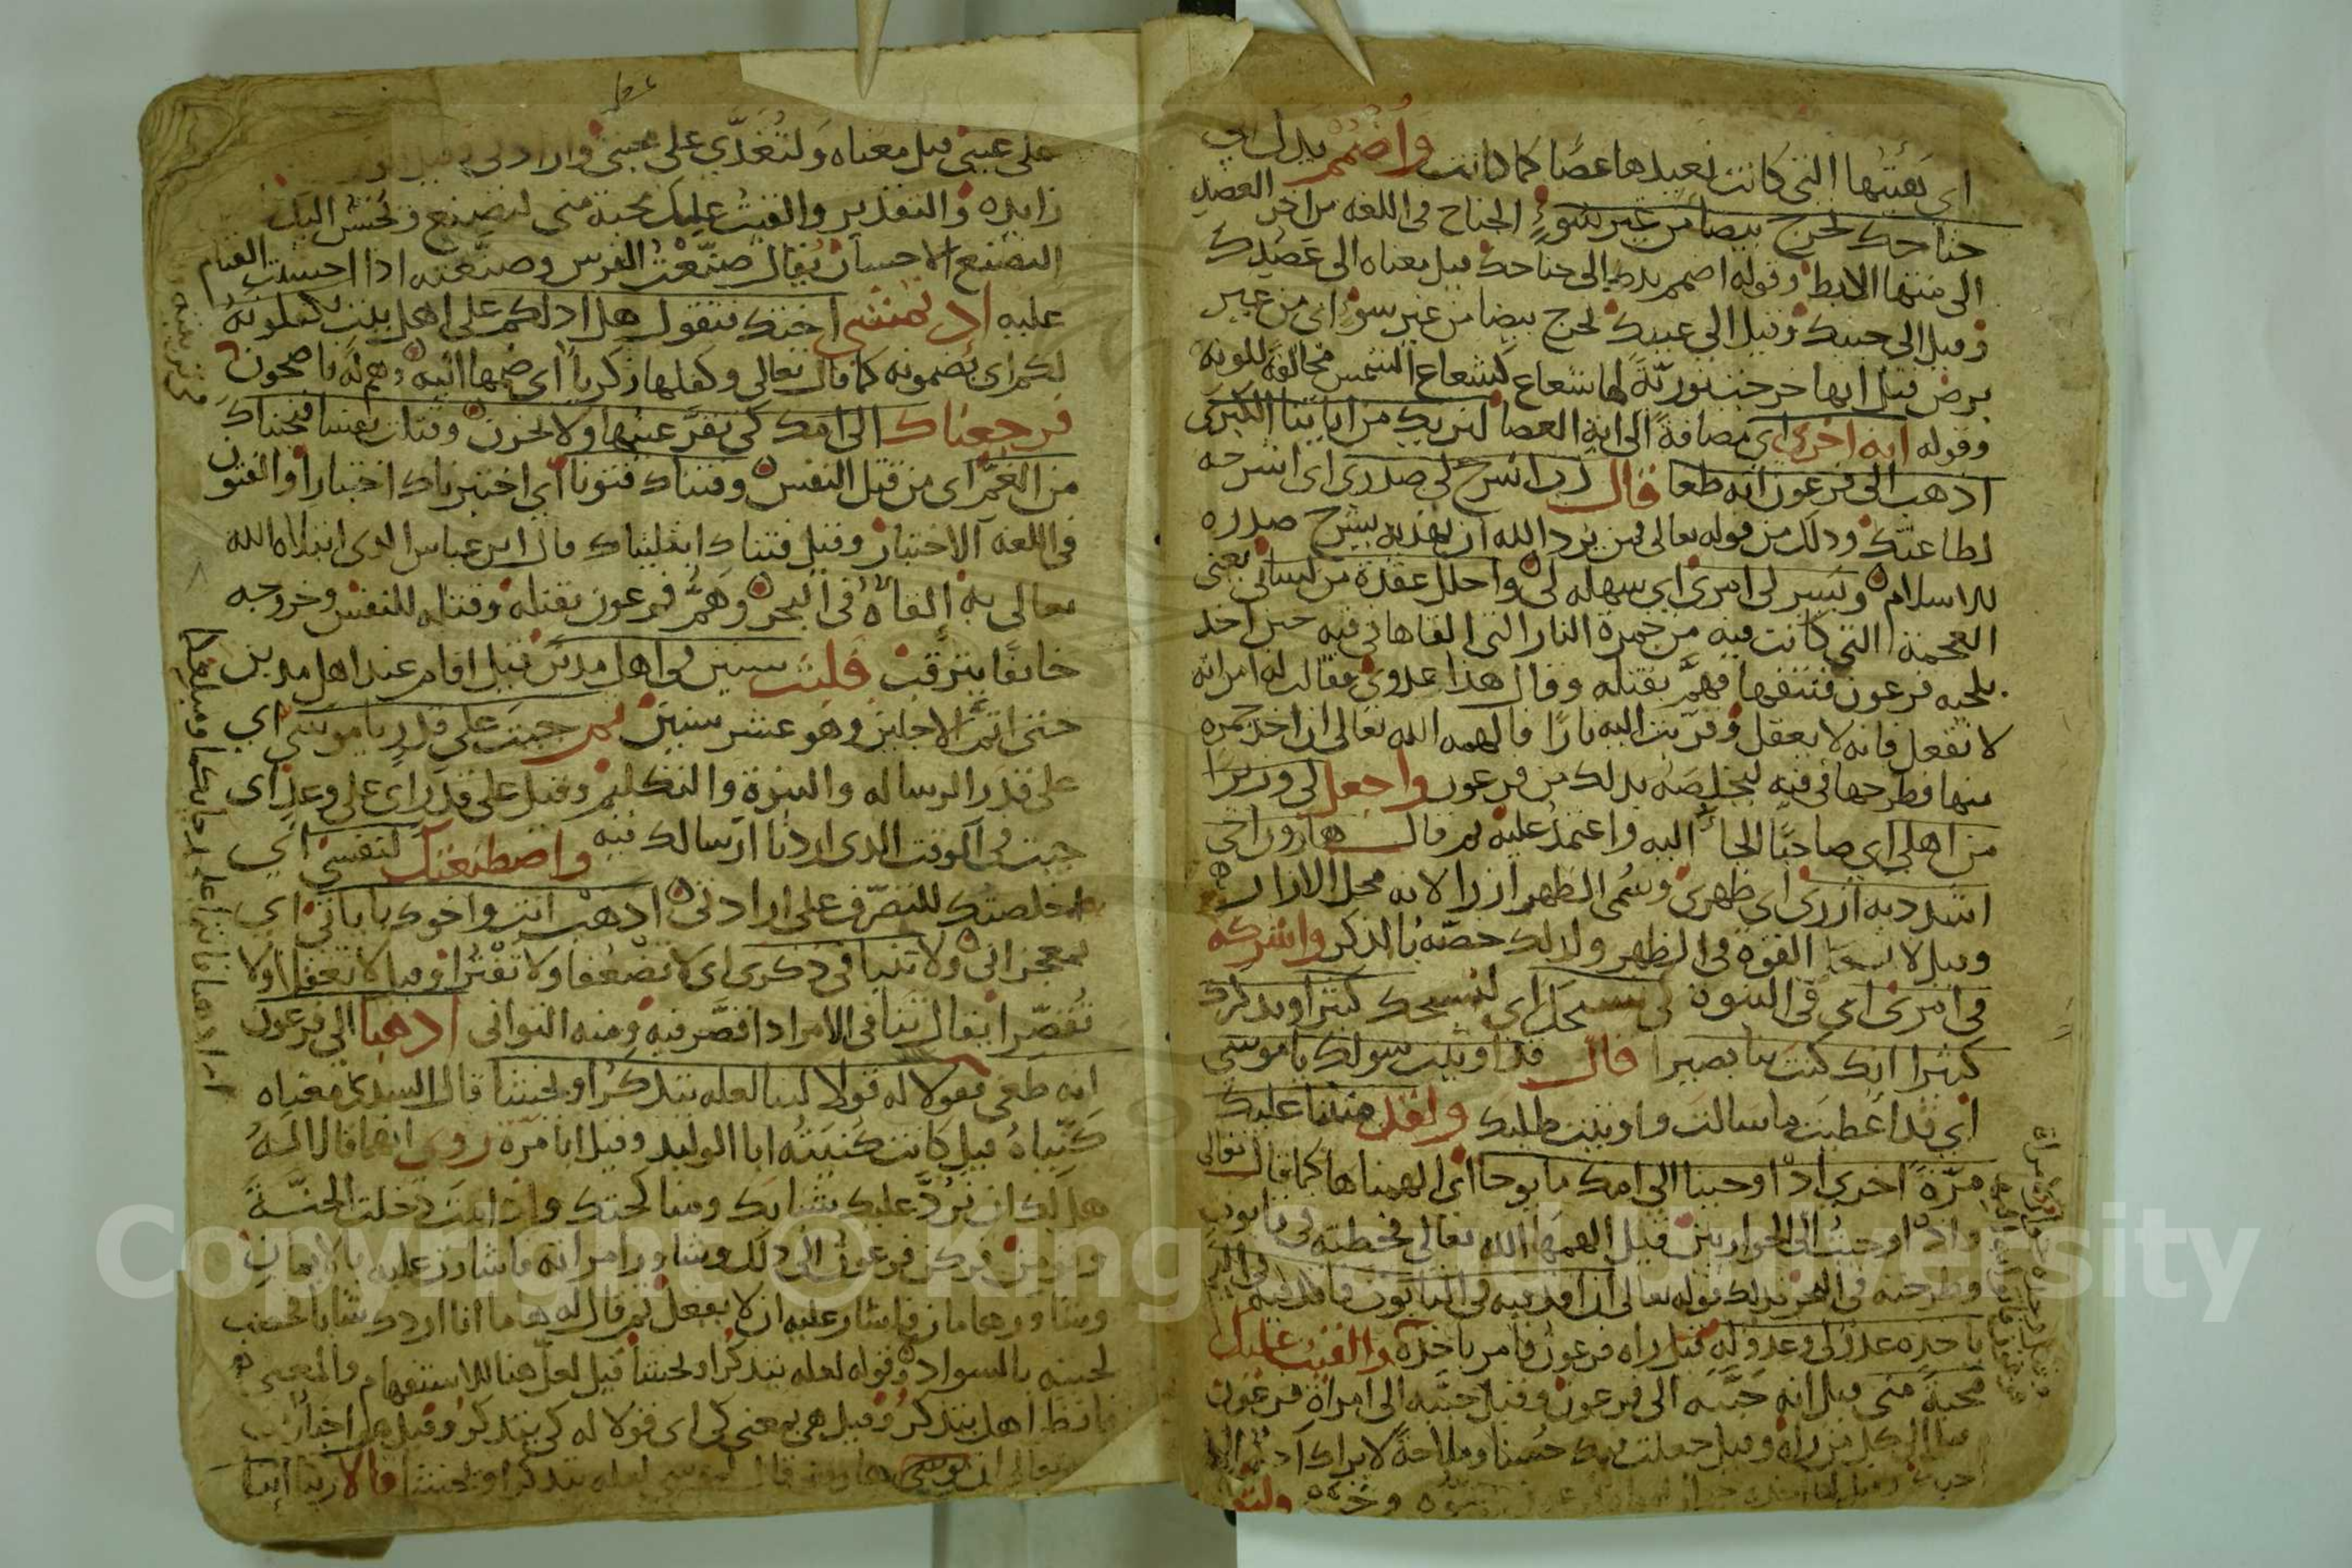 اي بقيتها التي كانت نعيدها عصا كما كانت واضمم يدك الى
جناحك تخرج بيضا من غير سوء الجناح في اللغة من اخر العضد
الى منتها الابط وقوله اضمم يدك الى جناحك قيل معناه الى عضدك
وقيل الى جنبك وقيل الى جيبك تخرج بيضا من غير سوء اي من غير
برص قيل انها خرجت نوريّة لها شعاع كشعاع الشمس مخالفة للونه
وقوله اية اخرى اي مضافة الى اية العصا لنريك من اياتنا الكبرى
اذهب الى فرعون انه طغا قال رب اشرح لي صدري اي اشرحه
لطاعتك وذلك من قوله تعالى فمن يرد الله ان يهديه يشرح صدره
للاسلام ويسر لي امري اي سهله لي واحلل عقدة من لساني يعني
العجمة التي كانت فيه من جمرة النار التي القاها في فيه حين اخذ
بلحية فرعون فنتفها فهمّ بقتله وقال هذا عدوي فقالت له امراته
لا تفعل فانه لا يعقل وقربت اليه نارا فالهمه الله تعالى ان اخذ جمرة
منها فطرحها في فيه ليخلصه بذلك من فرعون واجعل لي وزيرا
من اهلي اي صاحبا الجأ اليه واعتمد عليه ثم قال هارون اخي
اشدد به ازري اي ظهري وسمى الظهر ازرا لانه محل الازار
وقيل لانه القوة في الظهر ولذلك خصّه بالذكر واشركه
في امري اي في النبوة كي نسبحك اي نسبحك كثيرا ونذكرك
كثيرا انك كنت بنا بصيرا قال قد اوتيت سولك يا موسى
اي قد اعطيت ما سالت واوتيت طلبك ولقد مننا عليك
مرّة اخرى اذ اوحينا الى امك ما يوحا اي الهمناها كما قال تعالى
واذ اوحيت الى الحواريين قيل الهمها الله تعالى فحطته في تابوت
وطرحته في البحر فذلك قوله تعالى ان اقذفيه في التابوت فاقذفيه في اليم
ياخذه عدو لي وعدو له قيل راه فرعون فامر باخذه والقيت عليك
محبة مني قيل انه حبّبه الى فرعون وقيل حبّبه الى امراة فرعون
وقيل جعلت فيك حسنا وملاحة لا يراك احد الا
احبك
ولتصنع
على عيني قيل معناه ولتغذّي على محبتي وارادتي
زايدة والتقدير والقيت عليك محبة مني لتصنع وتحسن اليك
التصنع الاحسان يقال صنّعت الفرس وصنعته اذا احسنت القيام
عليه اذ تمشي اختك فتقول هل ادلكم على اهل بيت يكفلونه
لكم اي يضمونه كما قال تعالى وكفلها زكريا اي ضمها اليه وهم له ناصحون
فرجعناك الى امك كي تقرّ عينها ولا تحزن وقتلت نفسا فنجيناك
من الغمّ اي من قتل النفس وفتناك فتونا اي اختبرناك اختبارا والفتون
في اللغة الاختبار وقيل فتناك ابتليناك قال ابن عباس الذي ابتلاه الله
تعالى به القاؤه في البحر وهَمّ فرعون بقتله وقتله للنفس وخروجه
خائفا يترقب فلبثت سنين في اهل مدين قيل اقام عند اهل مدين
حتى اتمّ الاجلين وهو عشر سنين ثم جيت على قدر يا موسى اي
على قدر الرسالة والنبوة والتكليم وقيل على قدر اي على وعد اي
جيت في الوقت الذي اردنا ارسالك فيه واصطنعتك لنفسي اي
اخلصتك للتصرّف على ارادتي اذهب انت واخوك باياتي اي
بمعجزاتي ولا تنيا في ذكري اي لا تضعفا ولا تفترا وقيل لا تغفلا ولا
تقصّرا يقال تنا في الامر اذا قصّر فيه ومنه التواني اذهبا الى فرعون
انه طغى فقولا له قولا لينا لعله يتذكر او يخشى قال السدي معناه
كنّياه قيل كانت كنيته ابا الوليد وقيل ابا مرّة روي انهما قالا له
هل لك ان نردّ عليك شبابك ومناكحتك واذا مت دخلت الجنّة
وتومن فركن فرعون الى ذلك وشاور امراته فاشارت عليه بالايمان
وشاور هامان فاشار عليه ان لا يفعل ثم قال له هامان انا اردك شابا فخضب
لحيته بالسواد وقوله لعله يتذكر او يخشى قيل لعلّ هنا للاستفهام والمعنى
فانظرا هل يتذكر وقيل هي بمعنى كي اي قولا له كي يتذكر وقيل
تعالى ان موسى هارون قال لعله يتذكر او يخشى قالا ربنا اننا